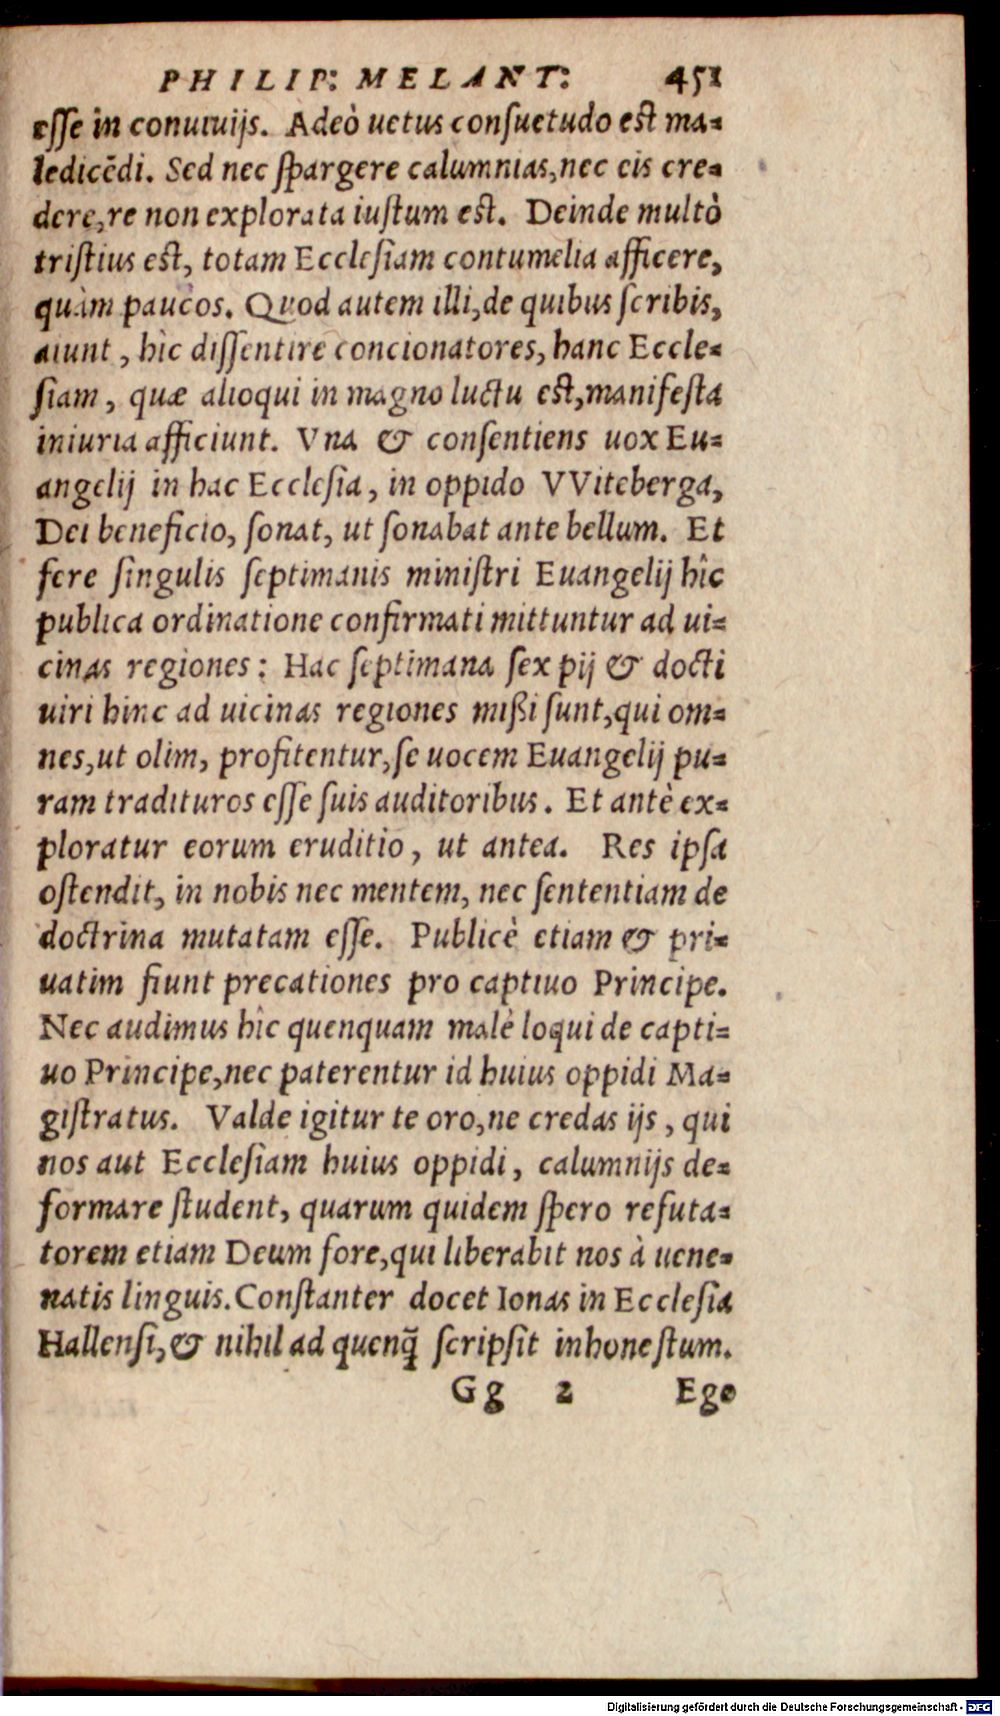 PHILIP: MELANT: 451
esse in conuiuijs. Adeò uetus consuetudo est ma=
ledicẽdi. Sed nec spargere calumnias, nec eis cre=
dere, re non explorata iustum est. Deinde multò
tristius est, totam Ecclesiam contumelia afficere,
quàm paucos. Quod autem illi, de quibus scribis,
aiunt, hîc dissentire concionatores, hanc Eccle=
siam, quæ alioqui in magno luctu est, manifesta
iniuria afficiunt. Vna & consentiens uox Eu=
angelij in hac Ecclesia, in oppido VViteberga,
Dei beneficio, sonat, ut sonabat ante bellum. Et
fere singulis septimanis ministri Euangelij hîc
publica ordinatione confirmati mittuntur ad ui=
cinas regiones: Hac septimana sex pij & docti
uiri hinc ad uicinas regiones mißi sunt, qui om=
nes, ut olim, profitentur, se uocem Euangelij pu=
ram tradituros esse suis auditoribus. Et antè ex=
ploratur eorum eruditio, ut antea. Res ipsa
ostendit, in nobis nec mentem, nec sententiam de
doctrina mutatam esse. Publicè etiam & pri=
uatim fiunt precationes pro captiuo Principe.
Nec audimus hîc quenquam malè loqui de capti=
uo Principe, nec paterentur id huius oppidi Ma=
gistratus. Valde igitur te oro, ne credas ijs, qui
nos aut Ecclesiam huius oppidi, calumnijs de=
formare student, quarum quidem spero refuta=
torem etiam Deum fore, qui liberabit nos à uene=
natis linguis. Constanter docet Ionas in Ecclesia
Hallensi, & nihil ad quenq̃ scripsit inhonestum.
Gg 2 Ego
Digitalisierung gefördert durch die Deutsche Forschungsgemeinschaft - DFG